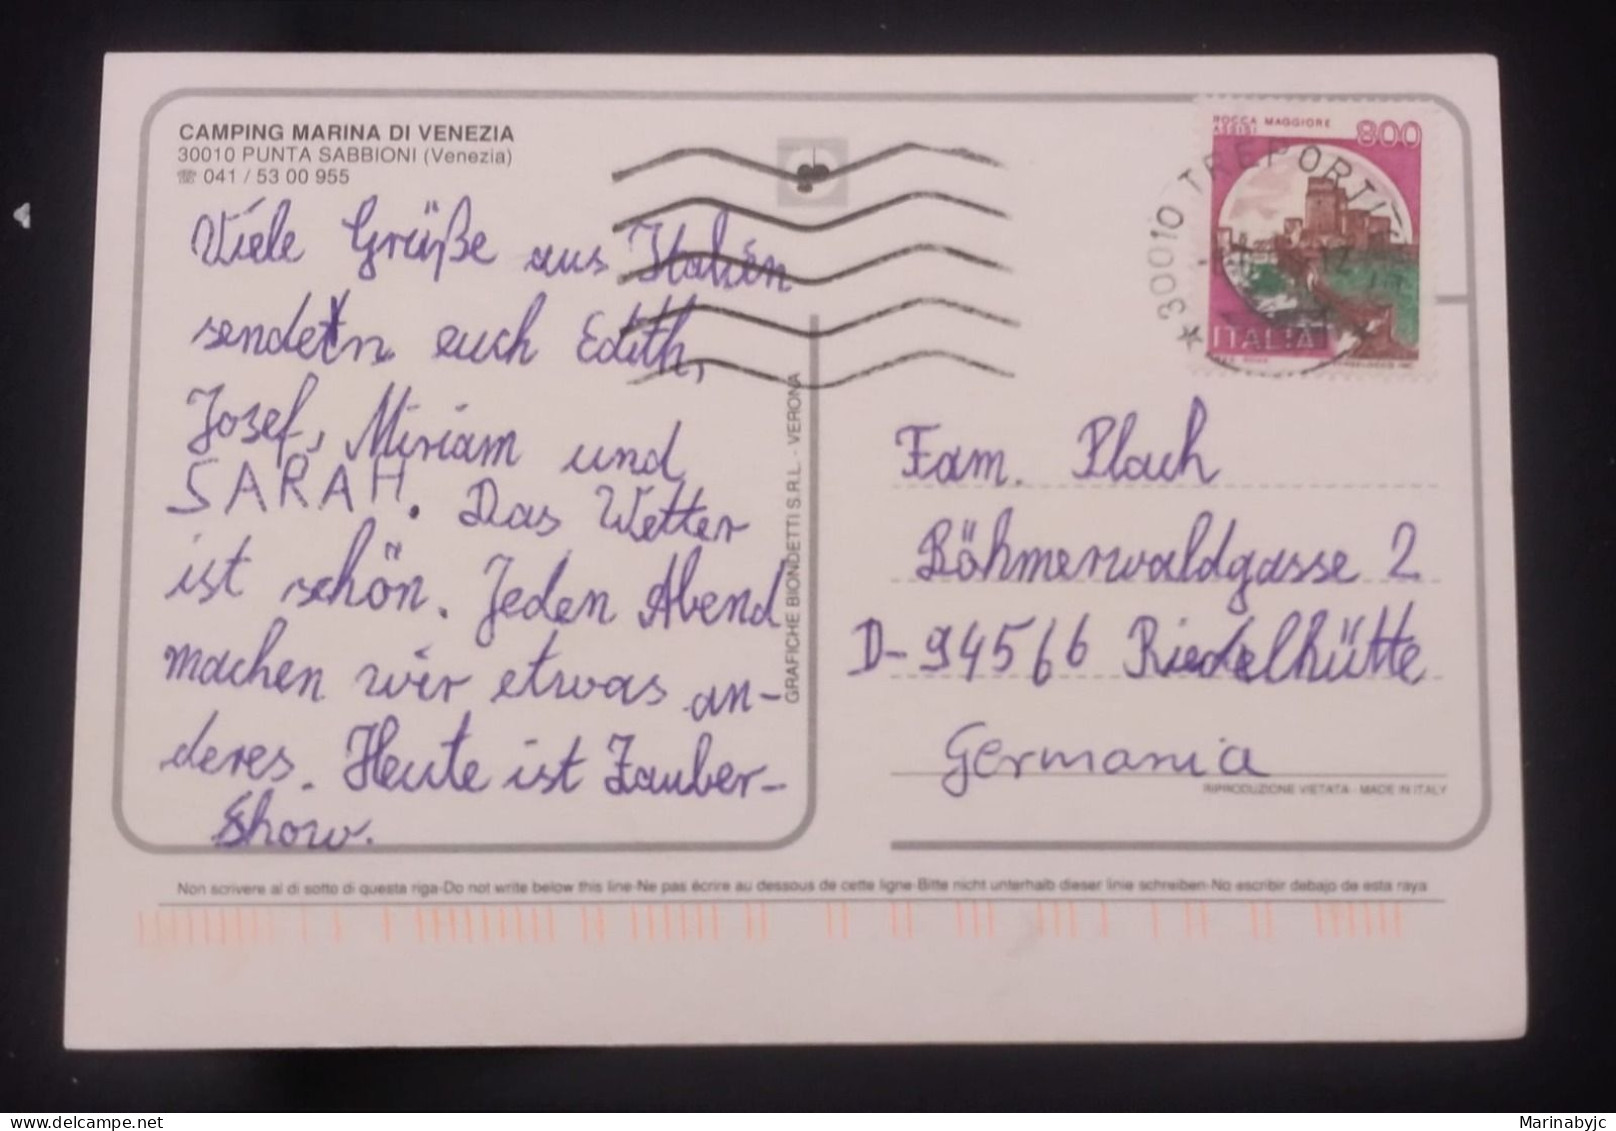 CAMPING MARINA DI VENEZIA
30010 PUNTA SABBIONI (Venezia)
☏ 041 / 53 00 955
Viele Grüße aus Italien
senden euch Edith,
Josef, Miriam und
SARAH. Das Wetter
ist schön. Jeden Abend
machen wir etwas an-
deres. Heute ist Zauber-
show.
GRAFICHE BIONDETTI S.R.L. - VERONA
ROCCA MAGGIORE
ASSISI
800
ITALIA
★ 30010 TREPORTI
Fam. Plach
Böhmerwaldgasse 2
D-94566 Riedelhütte
Germania
RIPRODUZIONE VIETATA - MADE IN ITALY
Non scrivere al di sotto di questa riga-Do not write below this line-Ne pas écrire au dessous de cette ligne-Bitte nicht unterhalb dieser linie schreiben-No escribir debajo de esta raya
delcampe.net
Marinabyjc